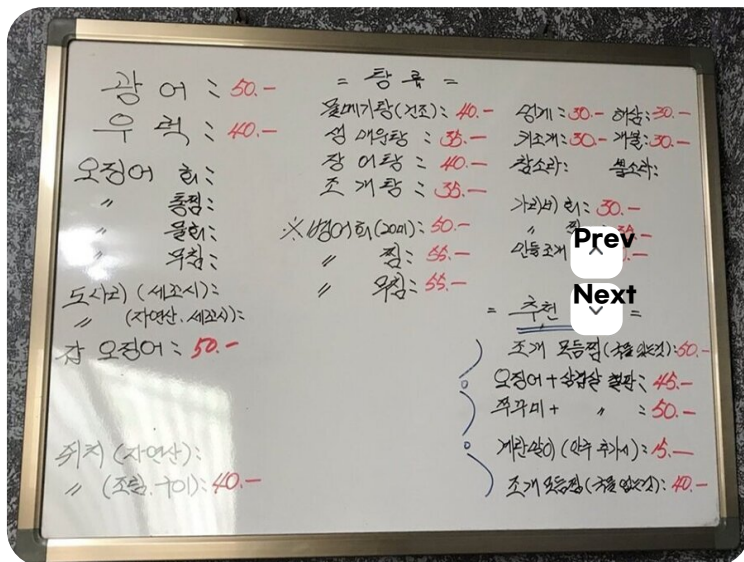 광어 : 50.-
우럭 : 40.-
오징어 회 :
〃 통찜 :
〃 물회 :
〃 무침 :
도다리 (세꼬시) :
〃 (자연산. 세꼬시) :
갑 오징어 : 50.-
쥐치 (자연산) :
〃 (조림. 구이) : 40.-
= 탕 류 =
물메기탕 (건조) : 40.-
섬 매운탕 : 35.-
장어탕 : 40.-
조개탕 : 35.-
※ 병어회 (20미) : 50.-
〃 찜 : 55.-
〃 무침 : 55.-
성게 : 30.- 해삼 : 30.-
키조개 : 30.- 개불 : 30.-
참소라 : 뿔소라 :
가리비 회 : 30.-
〃 찜
민들조개
Prev
Next
= 추천 =
조개 모듬찜 ( ) : 50.-
오징어 + 삼겹살 철판 : 45.-
쭈꾸미 + 〃 : 50.-
계란말이 (안주 추가시) : 15.-
조개 모듬찜 ( ) : 40.-